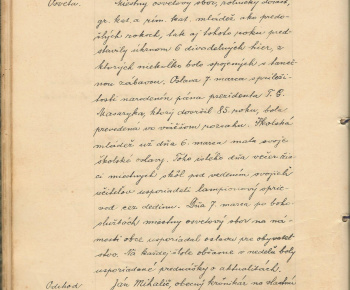 Osveta.
Miestny osvetový sbor, roľnícky dorast,
gr. kat. a rím. kat. mládež ako predo-
šlých rokoch, tak aj tohoto roku pred-
stavily úhrnom 6 divadelných hier, z
ktorých niekoľko bolo spojených s taneč-
nou zábavou. Oslava 7. marca spríleži-
tosti narodenín pána prezidenta T. G.
Masaryka, ktorý dovŕšil 85. roku, bola
prevedená vo väčšom rozsahu. Školská
mládež už dňa 6. marca mala svoje
školské oslavy. Toho istého dňa večer žia-
ci miestnych škôl pod vedením svojich
učiteľov usporiadali lampionový sprie-
vod cez dedinu. Dňa 7. marca po boho-
službách miestny osvetový sbor na ná-
mestí obce usporiadal oslavu pre obyvateľ-
stvo. Na každej škole občasne v nedeľu boly
usporiadané prednášky o aktualitách.
Odchod
Ján Mihalič, obecný kronikár na vlastnú